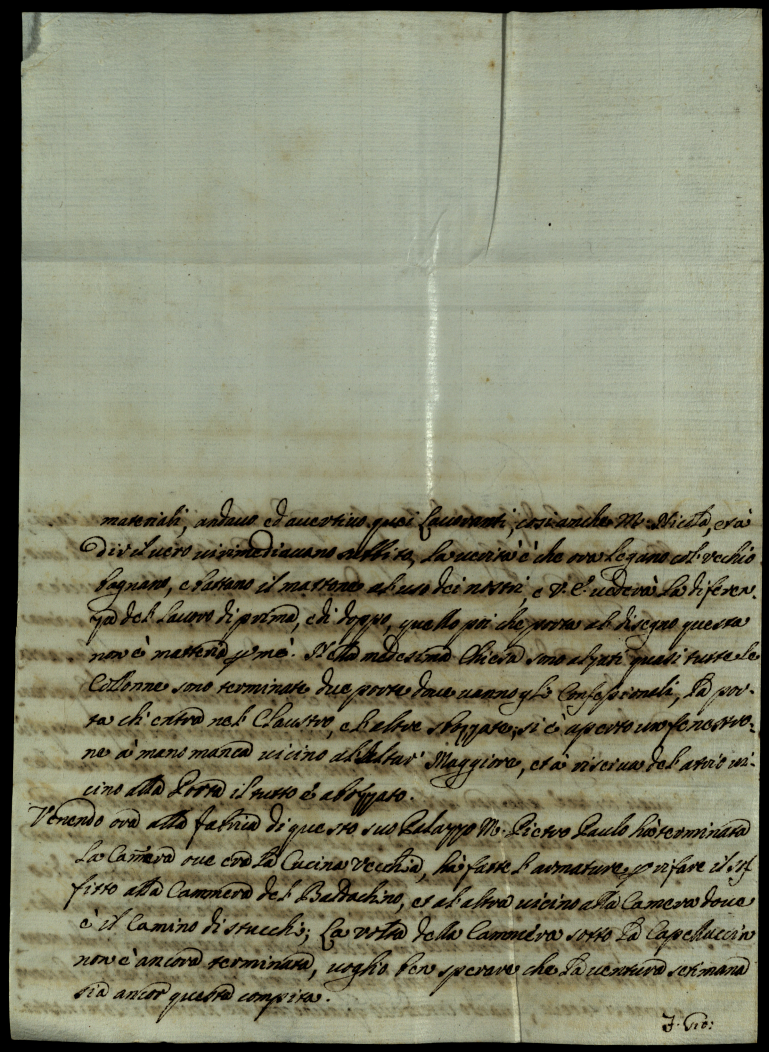 materiali, andavo ed avertivo quei Lavoranti, cosi anche M.º Nicola, et à
dir il vero vi rimediavano subbito, La verità è che ora legano col vechio
bagnano, e battano il mattone al uso dei nostri, e V. E. vederà La diferen-
za del Lavoro di prima, e di doppo, quello poi che porta al disegno questa
non è matteria p me. Nella medesima Chiesa sono alzati quasi tutte Le
Collonne sono terminate due porte dove vanno gli Confessionali, La por-
ta ch entra nel Claustro, e l altre sbozzate, si è aperto un fenestro-
ne à mano manca vicino al Altar Maggiore, et à riserva del atrio vi-
cino alla Porta il tutto è abozzato.
Venendo ora alla fabrica di questo suo Palazzo M.º Pietro Paulo hà terminata
La Camera ove era La Cucina Vecchia, hà fatte l armature p rifare il sof
fitto alla Cammera del Baldachino, et al altra vicino alla Camera dove
è il Camino di stucchi; La volta della Cammera sotto La Capelluccia
non è ancora terminata, voglio ben sperare che La ventura setimana
sia ancor questa compita.